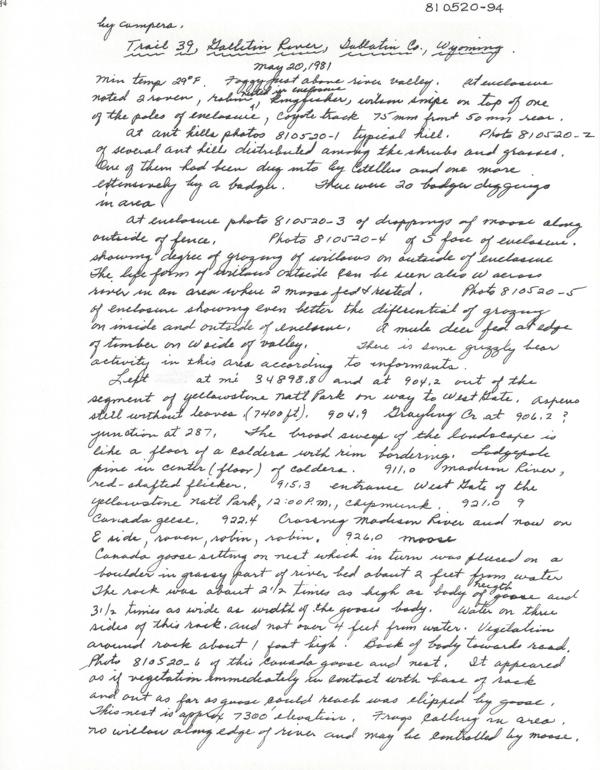 810520-94
by campers.
Trail 39, Gallitin River, Gallatin Co., Wyoming.
May 20, 1981
min temp 29°F. Foggy just above river valley. At enclosure
noted 2 raven, robin nested in enclosure, kingfisher, wilson snipe on top of one
of the poles of enclosure, coyote track 75 mm front 50 mm rear.
At ant hills photos 810520-1 typical hill. Photo 810520-2
of several ant hills distributed among the shrubs and grasses.
One of them had been dug into by Citellus and one more
extensively by a badger. There were 20 badger diggings
in area.
At enclosure photo 810520-3 of droppings of moose along
outside of fence. Photo 810520-4 of S face of enclosure.
showing degree of grazing of willows on outside of enclosure
The life form of willows outside can be seen also W across
river in an area where 2 moose fed & rested. Photo 810520-5
of enclosure showing even better the diferential of grazing
on inside and outside of enclosure. A mule deer fed at edge
of timber on W side of valley. There is some grizzly bear
activity in this area according to informants.
Left at mi 34898.8 and at 904.2 out of the
segment of yellowstone Natl Park on way to West Gate. Aspens
still without leaves (7400 ft). 904.9 Grayling Cr at 906.2 ?
junction at 287. The broad sweep of the landscape is
like a floor of a caldera with rim bordering. Lodgepole
pine in center (floor) of caldera. 911.0 Madison River,
red-shafted flicker. 915.3 entrance West Gate of the
yellowstone Natl Park, 12:00 P.M., chipmunk. 921.0 9
Canada geese. 922.4 Crossing Madison River and now on
E side, raven, robin, robin. 926.0 moose
Canada goose sitting on nest which in turn was placed on a
boulder in grassy part of river bed about 2 feet from water
The rock was about 2 1/2 times as high as body heigth of goose and
3 1/2 times as wide as width of the gooses body. Water on three
sides of this rock and not over 4 feet from water. Vegetation
around rock about 1 foot high. Back of body towards road.
Photo 810520-6 of this Canada goose and nest. It appeared
as if vegetation immediately in contact with base of rock
and out as far as goose could reach was clipped by goose.
This nest is approx 7300' elevation. Frogs calling in area.
no willow along edge of river and may be controlled by moose.